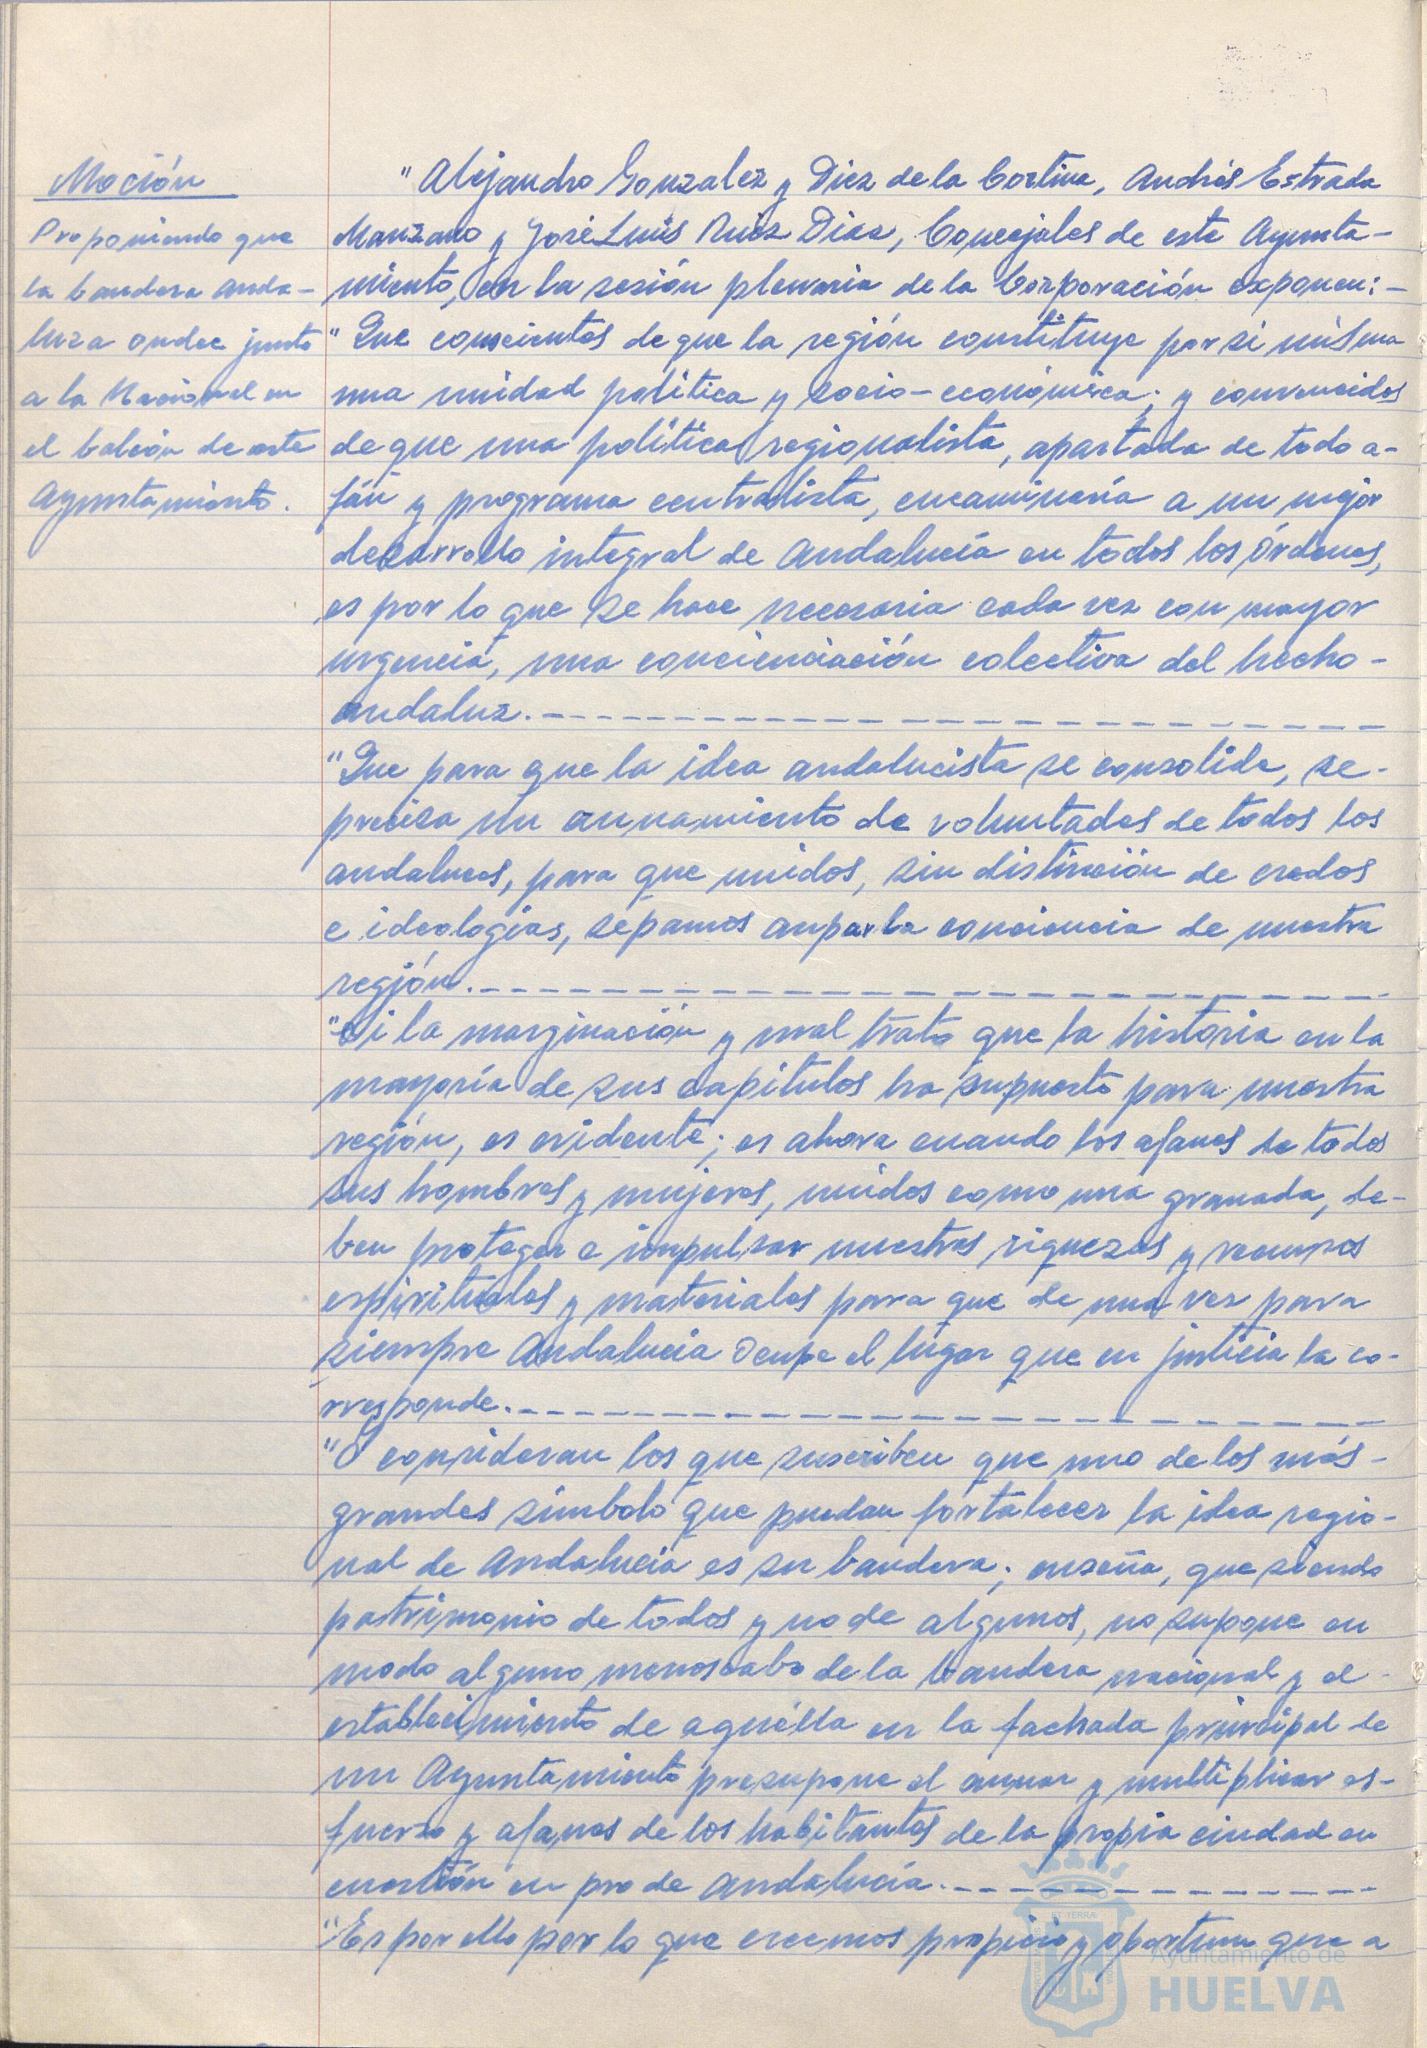 Moción
Proponiendo que
la bandera anda-
luza ondee junto
a la Nacional en
el balcón de este
Ayuntamiento.
"Alejandro Gonzalez y Diez de la Cortina, Andrés Estrada
Manzano y José Luis Ruiz Diaz, Concejales de este Ayunta-
miento, en la sesión plenaria de la Corporación exponen:-
"Que conscientes de que la región constituye por si misma
una unidad política y socio-económica; y convencidos
de que una política regionalista, apartada de todo a-
fán y programa centralista, encaminaría a un mejor
desarrollo integral de Andalucía en todos los órdenes,
es por lo que se hace necesaria cada vez con mayor
urgencia, una concienciación colectiva del hecho-
andaluz.
"Que para que la idea andalucista se consolide, se-
precisa un aunamiento de voluntades de todos los
andaluces, para que unidos, sin distinción de credos
e ideologías, sepamos aupar la conciencia de nuestra
región.
"Si la marginación y mal trato que la historia en la
mayoría de sus capítulos ha supuesto para nuestra
región, es evidente; es ahora cuando los afanes de todos
sus hombres y mujeres, unidos como una granada, de-
ben proteger e impulsar nuestras riquezas y recursos
espirituales y materiales para que de una vez para
siempre Andalucía ocupe el lugar que en justicia la co-
rresponde.
" consideran los que suscriben que uno de los más-
grandes símbolo que puedan fortalecer la idea regio-
nal de Andalucía es su bandera; enseña, que siendo
patrimonio de todos y no de algunos, no supone en
modo alguno menoscabo de la bandera nacional y el-
establecimiento de aquélla en la fachada principal de
un Ayuntamiento presupone el aunar y multiplicar es-
fuerzo y afanes de los habitantes de la propia ciudad en
cuestión en pro de Andalucía.
"Es por ello por lo que creemos propicio y oportuno que a
Ayuntamiento de
HUELVA